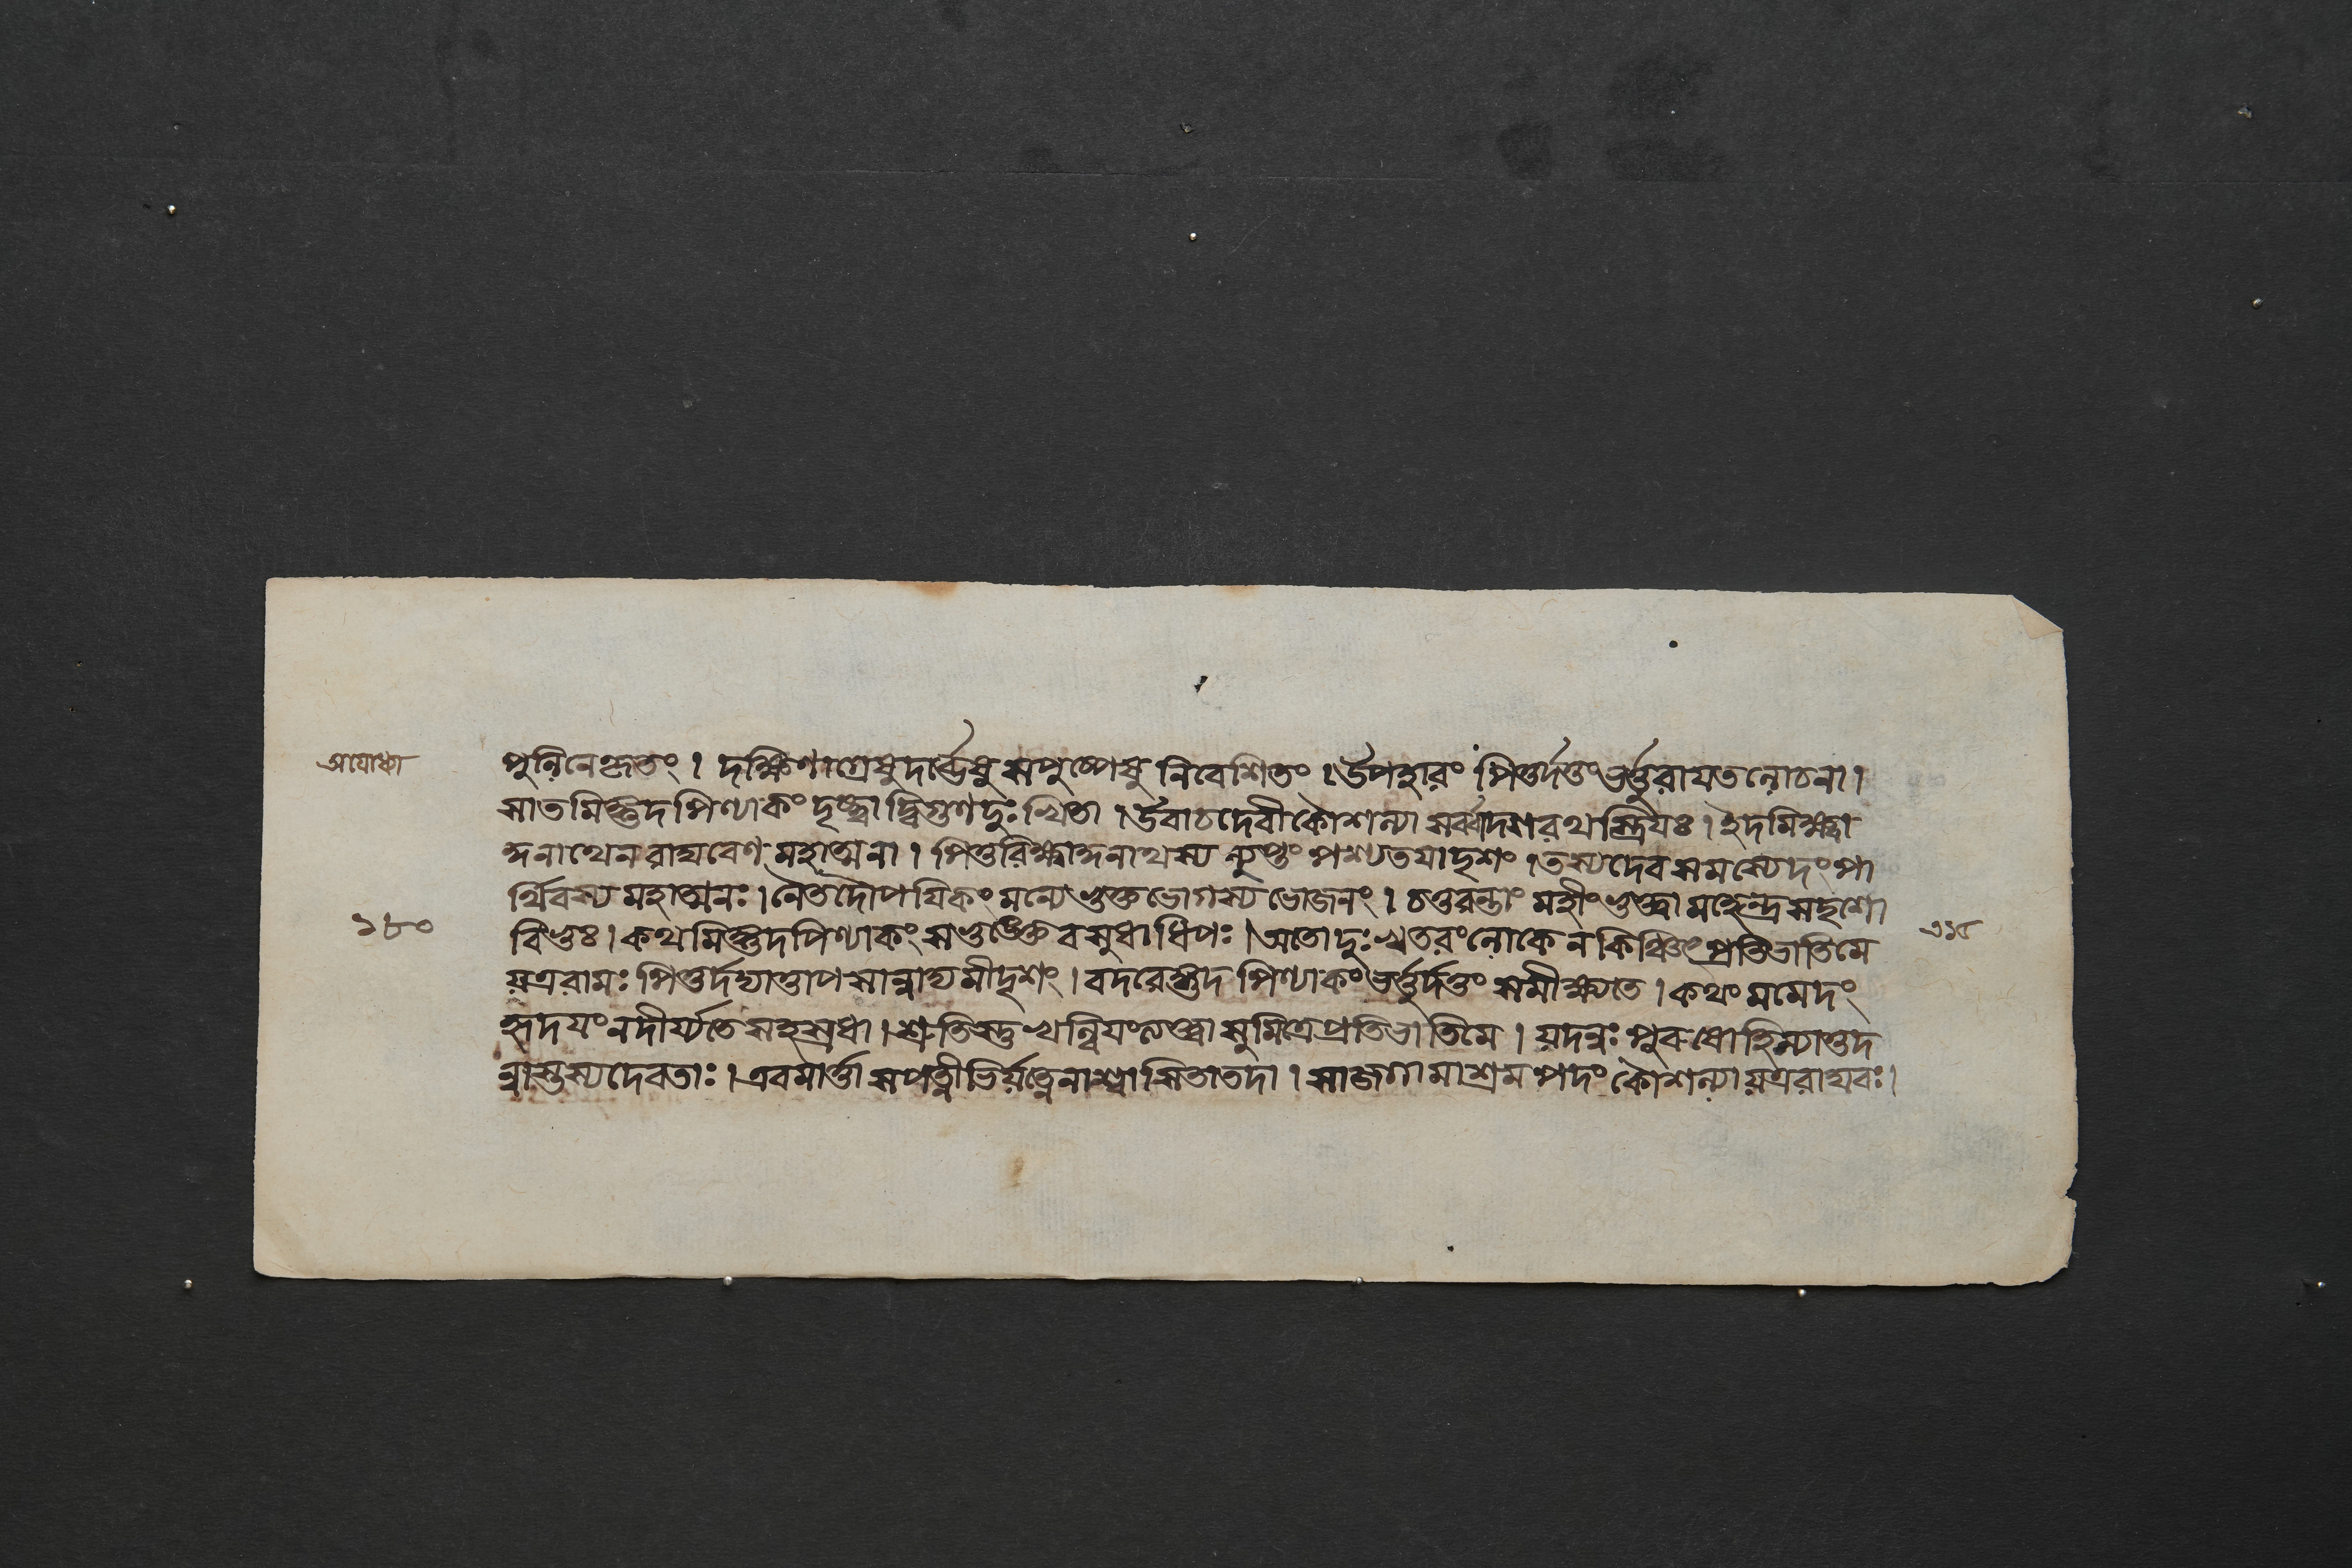 অযোধ্যা
পুলিনেহৃতং । দক্ষিণাগ্রেষুদার্ভেষুসপুষ্পেষু নিবেশিতং । উপহারং পিতুর্দত্তংভর্ত্তুরাযতলোচনা ।
সাতমিঙ্গুদপিণ্যাকং দৃষ্ট্বা দ্বিগুণদুঃখিতা । উবাচদেবীকৌশল্যা সর্ব্বাদশরথস্ত্রিযঃ । ইদমিক্ষ্বা
কুনাথেন রাঘবেণ মহাত্মনা । পিতুরিক্ষ্বাকুনাথস্য ন্যুপ্তং পশ্যতযাদৃশং । তস্যদেবসমস্যেদংপা
র্থিবস্য মহাত্মনঃ । নৈতদৌপযিকং মন্যেভুক্তভোগস্য ভোজনং । চতুরন্তাং মহীংভুক্ত্বা মহেন্দ্রসদৃশো
বিভুঃ । কথমিঙ্গুদপিণ্যাকং সভুঙ্ক্তেবসুধাধিপঃ । অতোদুঃখতরংলোকে ন কিঞ্চিৎপ্রতিভাতিমে
১৮০
২১৫
যত্ররামঃ পিতুর্দদ্যাত্তাপসান্নাদ্যমীদৃশং । বদরেঙ্গুদপিণ্যাকংভর্ত্তুর্দত্তং সমীক্ষ্যতে । কথং মমেদং
হৃদযংনদীর্য্যতে সহস্রধা । শ্রুতিস্তু খল্বিযংলব্ধা সুমিত্রেপ্রতিভাতিমে । যদন্নঃ পুরুষোহিস্যাত্তদ
ন্নাস্তস্যদেবতাঃ । এবমার্ত্তা সপত্নীভির্যত্নেনাশ্বাসিতাতদা । সাজগামাশ্রমপদং কৌশল্যাযত্ররাঘবঃ ।